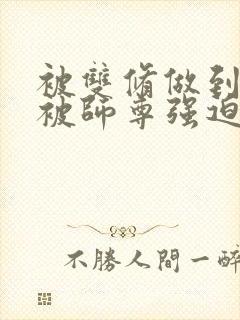 被雙脩做到
被師尊强迫
不勝人間一醉